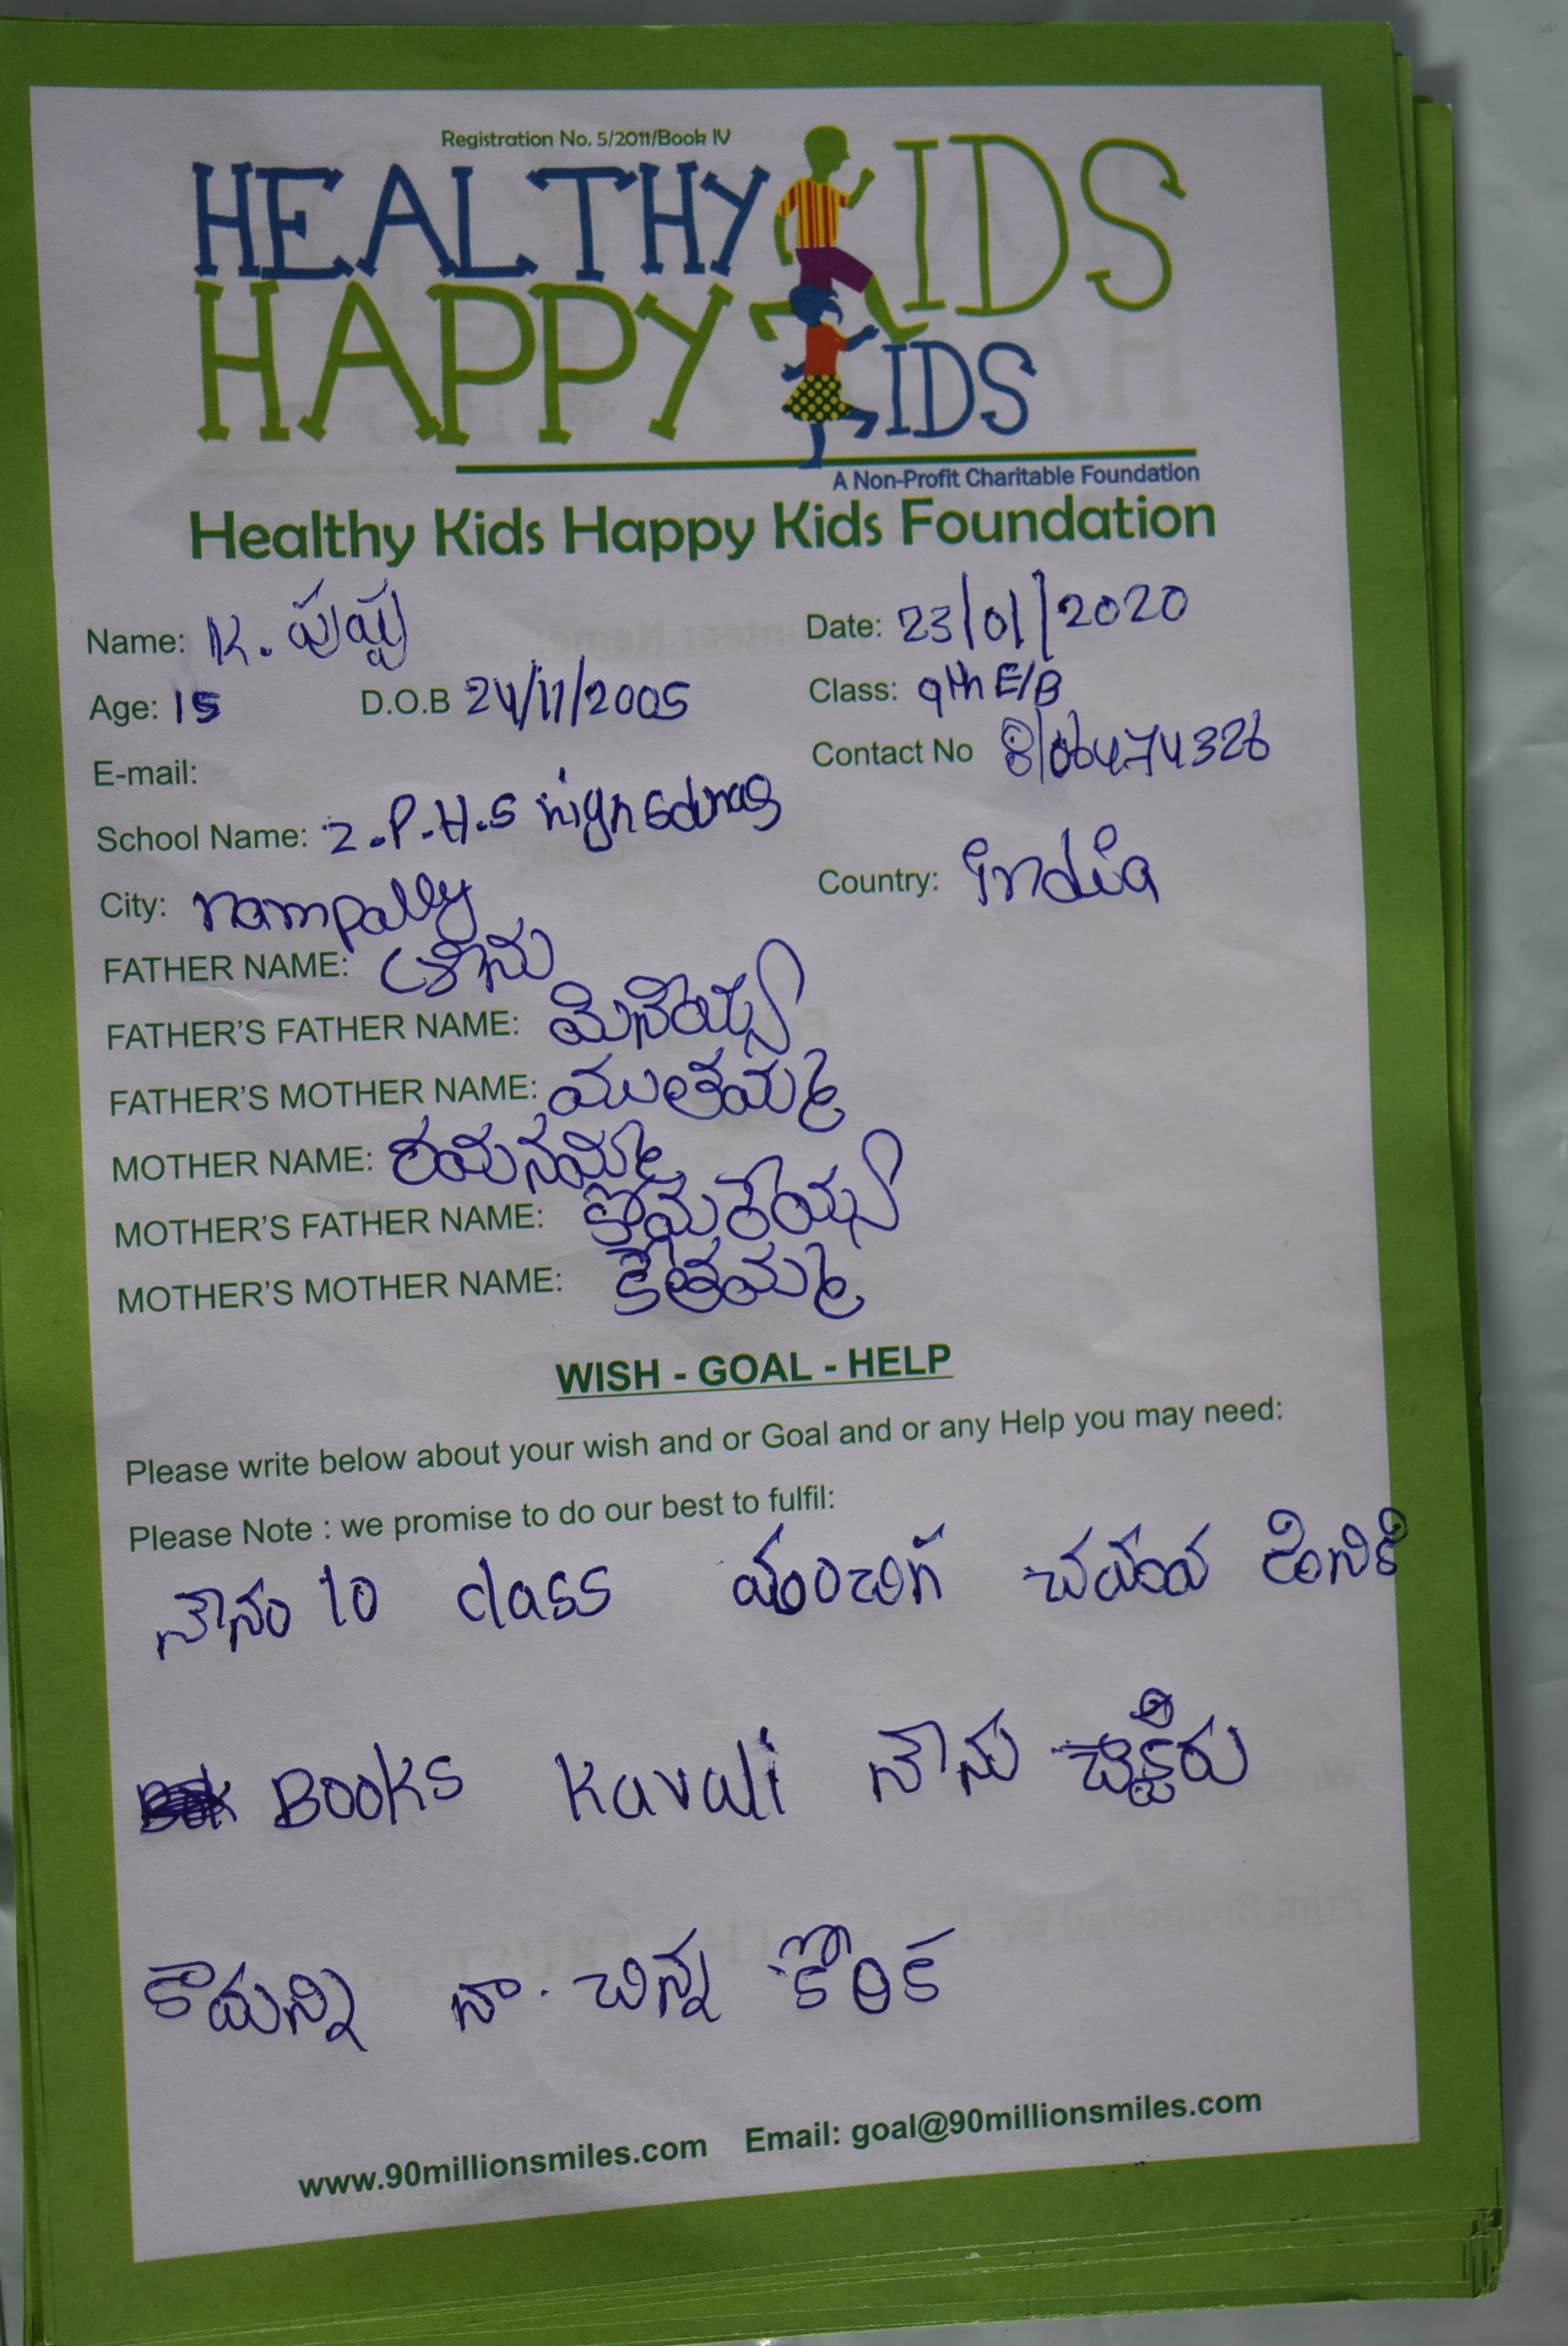 Registration No. 5/2011/Book IV
HEALTHY KIDS
HAPPY KIDS
A Non-Profit Charitable Foundation
Healthy Kids Happy Kids Foundation
Name: K. పుష్ప Date: 23/01/2020
Age: 15 D.O.B 24/11/2005 Class: 9th E/B
E-mail: Contact No
School Name: Z.P.H.S
City: nampally Country: india
FATHER NAME: శ్రీను
FATHER'S FATHER NAME:
FATHER'S MOTHER NAME: ముతమ్మ
MOTHER NAME:
MOTHER'S FATHER NAME:
MOTHER'S MOTHER NAME: కేతమ్మ
WISH - GOAL - HELP
Please write below about your wish and or Goal and or any Help you may need:
Please Note : we promise to do our best to fulfil:
10 class మంచిగ
Books Kavali నాను
నా. చిన్న కోరిక
www.90millionsmiles.com Email: goal@90millionsmiles.com